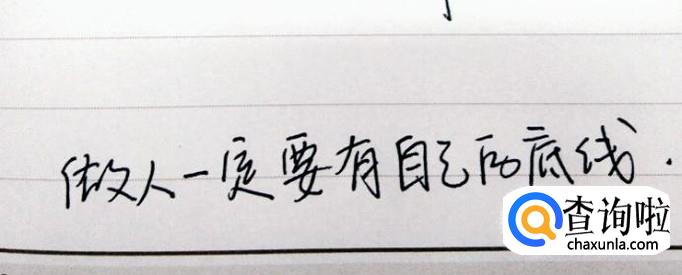 做人一定要有自己的底线.
查询啦
chaxunla.com